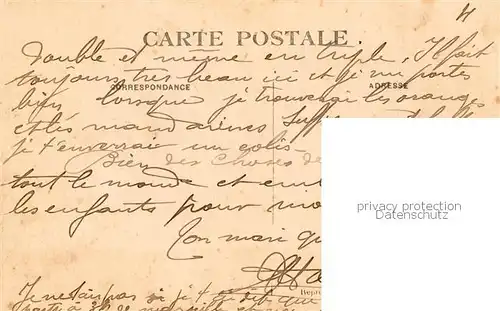 4
CARTE POSTALE.
double et même en triple. Il fait
toujours très beau ici et je me portes
CORRESPONDANCE
ADRESSE
bien lorsque je trouverai les oranges
et les mandarines
je t'enverrais un colis
Bien des choses de
tout le monde et
les enfants pour mo
Ton mari qu
privacy protection
Datenschutz
Je ne sais pas si je t'ai dit que